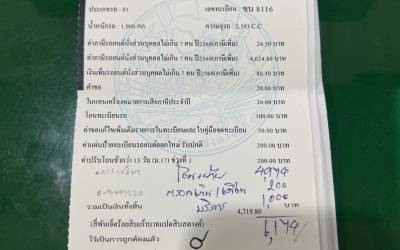 ประเภทรถ : 01 เลขทะเบียน : ขน 8116
น้ำหนักรถ : 1,900 กก ความจุรถ : 2,393 C.C
ค่าภาษีรถยนต์นั่งส่วนบุคคลไม่เกิน 7 คน ปี2568(ภาษีเพิ่ม) 24.30 บาท
ค่าภาษีรถยนต์นั่งส่วนบุคคลไม่เกิน 7 คน ปี2569(ภาษีเพิ่ม) 4,024.80 บาท
เงินเพิ่มรถยนต์นั่งส่วนบุคคลไม่เกิน 7 คน ปี2569(ภาษีเพิ่ม) 80.50 บาท
ค่าขอ 20.00 บาท
ใบแทนเครื่องหมายการเสียภาษีประจำปี 20.00 บาท
โอนทะเบียนรถ 100.00 บาท
ค่าขอแก้ไขเพิ่มเติมรายการในทะเบียนและใบคู่มือจดทะเบียน 50.00 บาท
ค่าแผ่นป้ายทะเบียนรถยนต์ออกใหม่ รับปกติ 200.00 บาท
ค่าปรับโอนช้ากว่า 15 วัน (ม.17) ช่วงที่ 1 200.00 บาท
4,974
200
บริการ 1,000
รวมเป็นเงินทั้งสิ้น 4,719.80
6,174
(สี่พันเจ็ดร้อยสิบเก้าบาทแปดสิบสตางค์)
ไว้เป็นการถูกต้องแล้ว